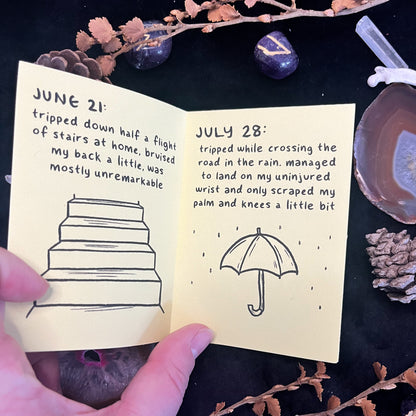 JUNE 21:
tripped down half a flight
of stairs at home, bruised
my back a little, was
mostly unremarkable
JULY 28:
tripped while crossing the
road in the rain. managed
to land on my uninjured
wrist and only scraped my
palm and knees a little bit